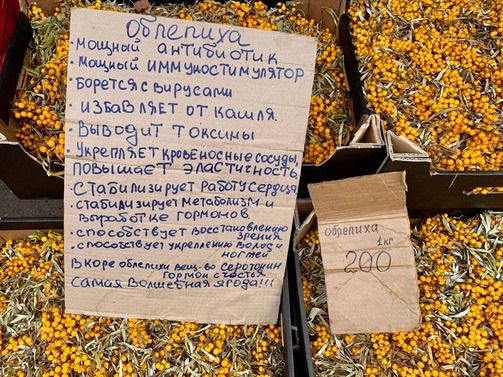 Облепиха
· мощный антибиотик
· мощный иммуностимулятор
· борется с вирусами
· избавляет от кашля.
· выводит токсины
· укрепляет кровеносные сосуды,
повышает эластичность
· стабилизирует работу сердца
· стабилизирует метаболизм и
выработке гормонов
· способствует восстановлению
зрения
· способствует укреплению волос и
ногтей
В коре облепихи вещ-во серотонин
гормон счастья
Самая волшебная ягода!!!
Облепиха
1кг
200